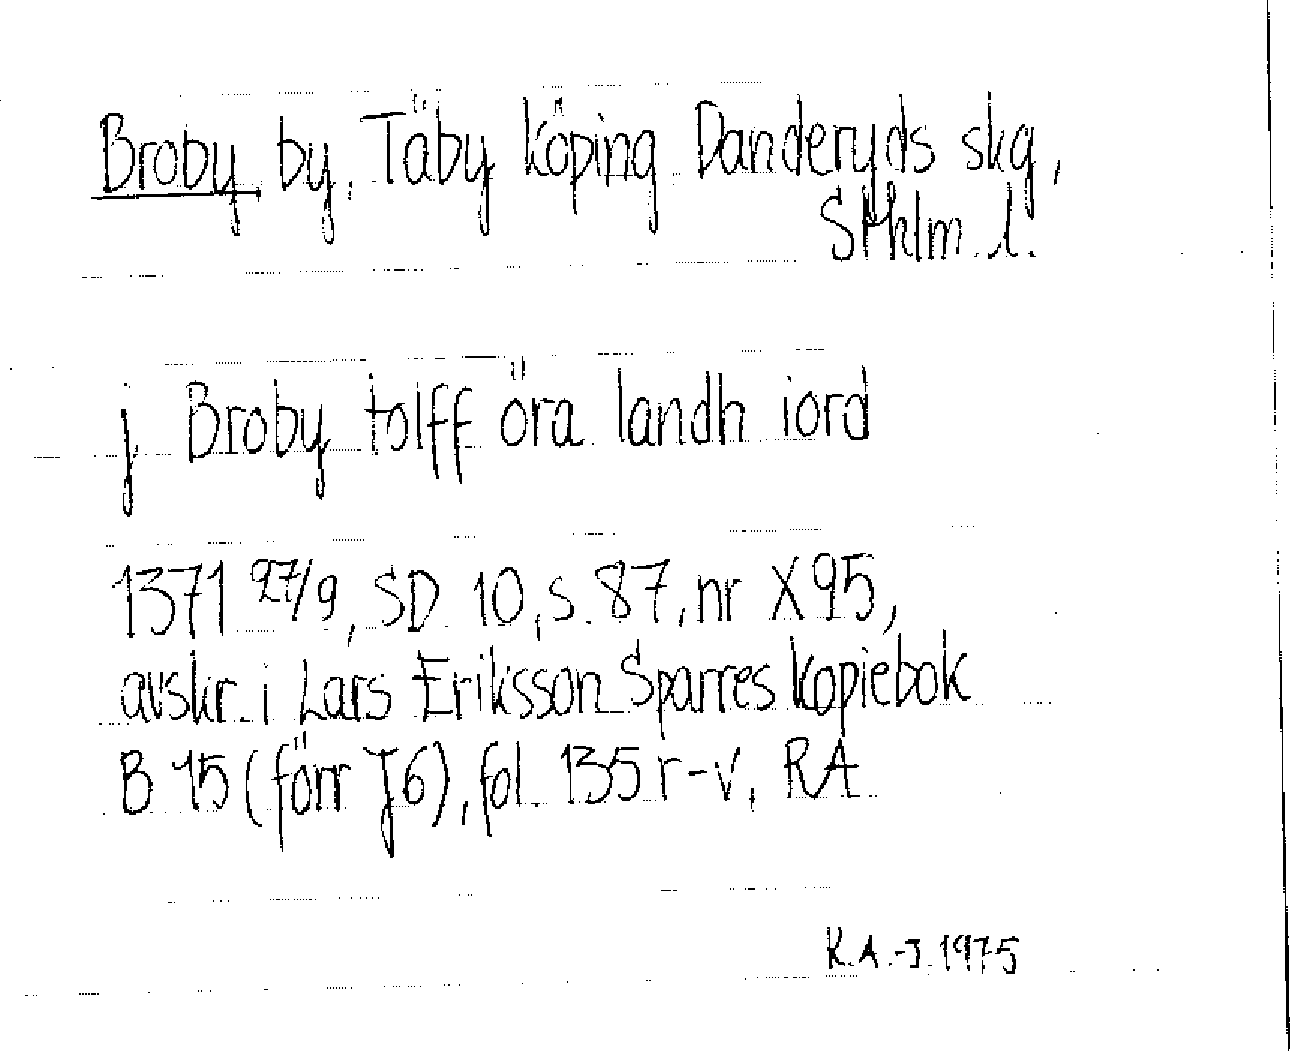 Broby by, Täby köping Danderyds skg,
Sthlm. l.
j Broby tolff öra landh iord
1371 27/9, SD 10, s. 87, nr X95,
avskr. i Lars Eriksson Sparres kopiebok
B 15 (förr J6), fol. 135 r-v, RA
K.A.-J. 1975